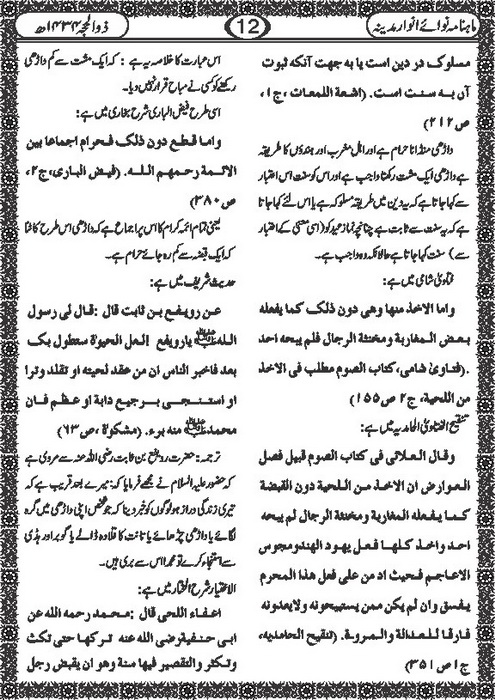 ماہنامہ نوائے انوار مدینہ
12
ذوالحجہ ۱۴۳۴ھ
مسلوک در دین است یا به جهت آنکه ثبوت
آں به سنت است. (اشعة اللمعات ،ج۱،
ص۲۱۲)
داڑھی منڈانا حرام ہے اور اہل مغرب اور ہندوؤں کا طریقہ
ہے داڑھی ایک مشت رکھنا واجب ہے اور اس کو سنت اس اعتبار
سے کہا جاتا ہے کہ یہ دین میں طریقہ مسلوکہ ہے یا اس لئے کہا جاتا
ہے کہ یہ سنت سے ثابت ہے چنانچہ نماز عید کو (اسی معنی کے اعتبار
سے) سنت کہا جاتا ہے حالانکہ وہ واجب ہے۔
فتاویٰ شامی میں ہے:
واما الاخذ منها وهى دون ذلک کما يفعله
بعض المغاربة ومخنثة الرجال فلم يبحه احد
.(فتاویٰ شامی،کتاب الصوم مطلب فى الاخذ
من اللحية، ج۲ ص۱۵۵)
تنقیح الفتاویٰ الحامدیہ میں ہے:
وقال العلائى فى كتاب الصوم قبيل فصل
العوارض ان الاخذ من اللحية دون القبضة
كما يفعله المغاربة ومخنثة الرجال لم يبحه
احد واخذ كلها فعل يهود الهندومجوس
الاعاجم فحيث ادمن على فعل هذا المحرم
يفسق وان لم يكن ممن يستبيحونه ولايعدونه
فارقا للعدالة والمروة. (تنقيح الحامديه،
ج۱ص۳۵۱)
اس عبارت کا خلاصہ یہ ہے : کہ ایک مشت سے کم داڑھی
رکھنے کو کسی نے مباح قرار نہیں دیا۔
اسی طرح فیض الباری شرح بخاری میں ہے:
واما قطع دون ذلک فحرام اجماعا بين
الائمة رحمهم الله. (فيض البارى،ج۲،
ص۳۸۰)
یعنی تمام ائمہ کرام کا اس پر اجماع ہے کہ داڑھی اس طرح کاٹنا
کہ ایک قبضہ سے کم رہ جائے حرام ہے۔
حدیث شریف میں ہے:
عن رويفع بن ثابت قال :قال لى رسول
اللهﷺ يارويفع !لعل الحيوة ستطول بک
بعد فاخبر الناس ان من عقد لحيته او تقلد وترا
او استنجى برجيع دابة او عظم فان
محمدﷺ منه برء. (مشکوة ،ص۴۳)
ترجمہ: حضرت رویفع بن ثابت رضی اللہ عنہ سے مروی ہے
کہ حضور علیہ السلام نے مجھے فرمایا کہ: میرے بعد قریب ہے کہ
تیری زندگی دراز ہو لوگوں کو خبر دینا کہ جو شخص اپنی داڑھی میں گرہ
لگائے یا داڑھی چڑھائے یا تانت کا قلادہ ڈالے یا گوبر اور ہڈی
سے استنجا کرے تو محمدا اس سے بری ہیں۔
الاختیار شرح المختار میں ہے:
اعفاء اللحى قال :محمد رحمه الله عن
ابى حنيفةرضى الله عنه تركها حتى تكث
وتكثر والتقصير فيها سنة وهو ان يقبض رجل